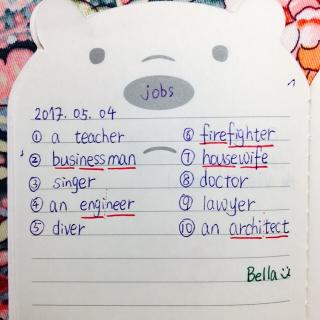 jobs
2017. 05. 04
① a teacher
② businessman
③ singer
④ an engineer
⑤ diver
⑥ firefighter
⑦ housewife
⑧ doctor
⑨ lawyer
⑩ an architect
Bella